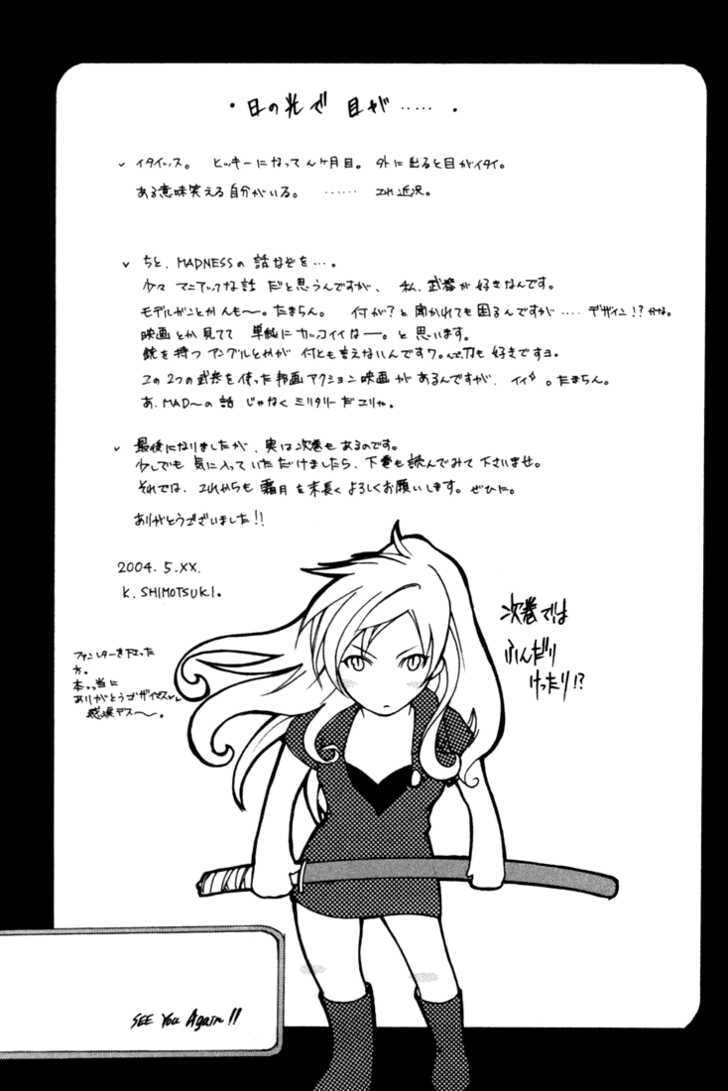 ・日の光で 目が……・
✓ イタイッス。 ヒッキーになってん ヶ月目。 外に出ると目がイタイ。
ある意味笑える自分がいる。 …… これ近況。
✓ ちと、MADNESSの 話なぞを…。
少々 マニアックな話 だと思うんですが、 私、武器が好きなんです。
モデルガンとかんも〜。たまらん。 何が?と 聞かれても困るんですが…. デザイン!?かな。
映画とか見てて 単純にカッコイイなーー。と 思います。
銃を持つ アングルとかが 何とも言えないんですワ。んで、刀も好きですヨ。
この2つの武器を使った 邦画アクション映画 があるんですが、イイ。たまらん。
あ、MAD〜の話 じゃなく ミリタリーだこりゃ。
✓ 最後になりましたが、実は次巻もあるのです。
少しでも 気に入っていただけましたら、下巻も読んでみて下さいませ。
それでは、これからも 霜月 を末長く よろしくお願いします。ぜひに。
ありがとうございました!!
2004. 5. XX.
K. SHIMOTSUKI.
ファンレターを下さった
方。
本っ当に
ありがとうゴザイマス
感涙デス〜。
次巻では
ふんだり
けったり!?
SEE You Again !!